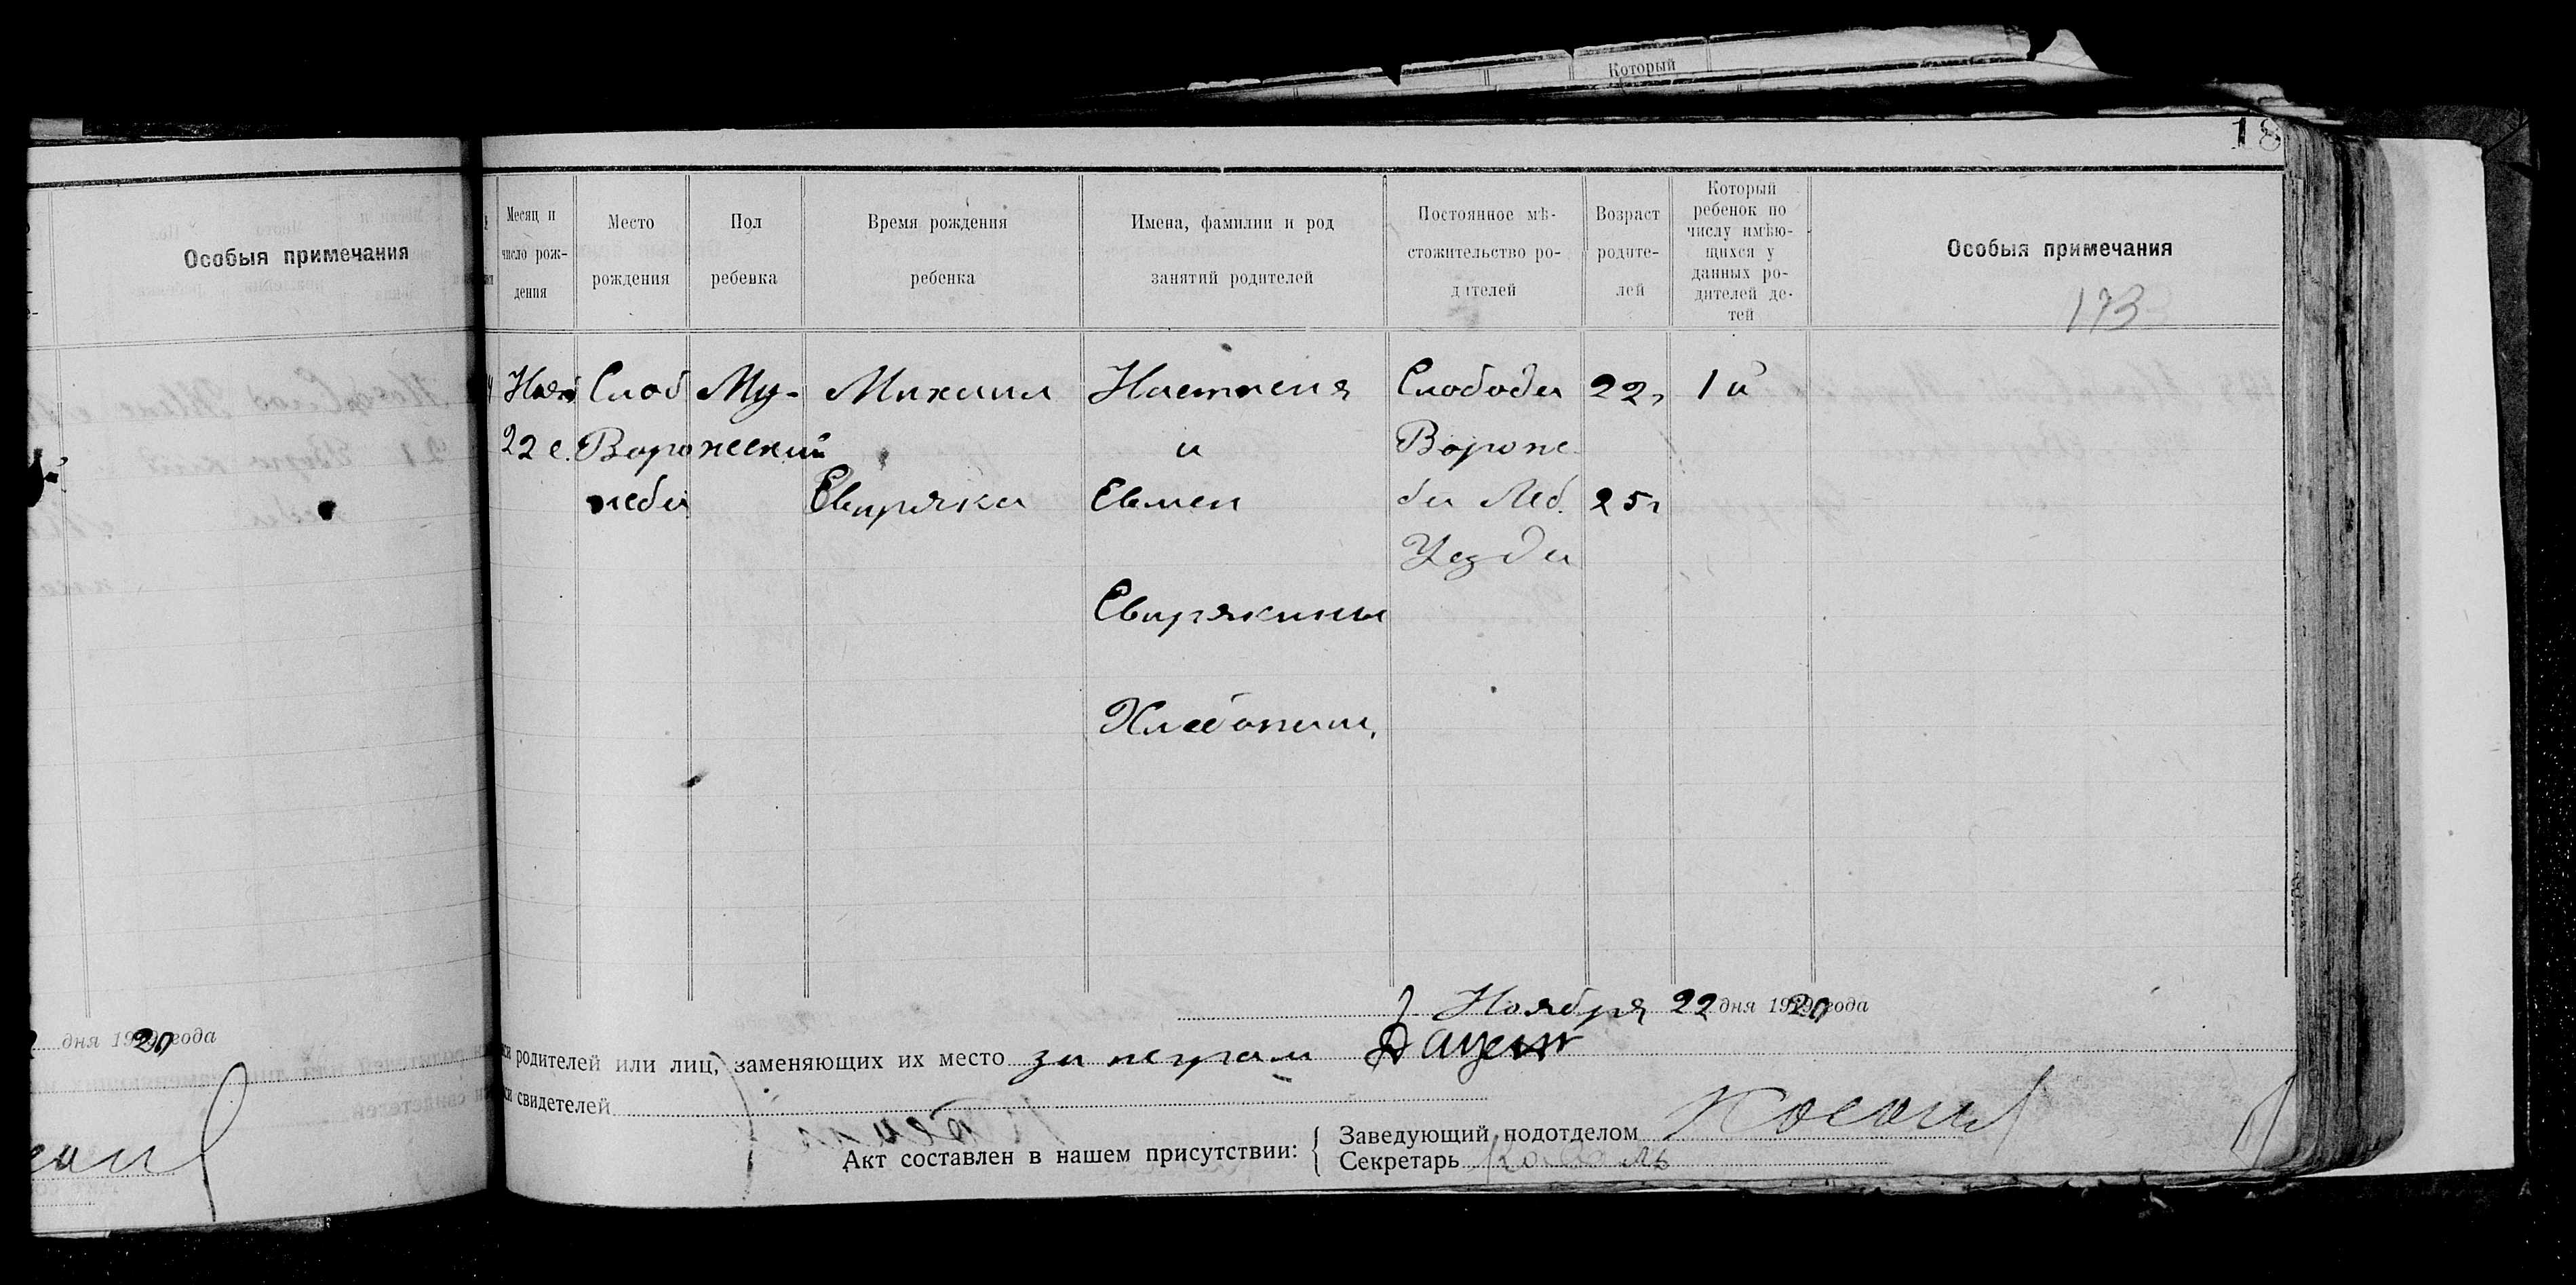 Который
18
Особыя примечания
Месяц и число рождения
Место рождения
Пол ребенка
Время рождения ребенка
Имена, фамилии и род занятий родителей
Постоянное мѣстожительство родителей
Возраст родителей
Который ребенок по числу имѣющихся у данных родителей детей
Особыя примечания
173
Слоб Му- Михаил Настасия Слободы 22 г 1 й
22 с. Ворожеский и Вороже
жбы Свиряка Евмен бы Леб. 25 г
Уезда
Свирякины
Хлебопаш,
Ноября 22 дня 1920 года
дня 1920 года
родителей или лиц, заменяющих их место за неграм
свидетелей
Акт составлен в нашем присутствии:
Заведующий подотделом
Секретарь